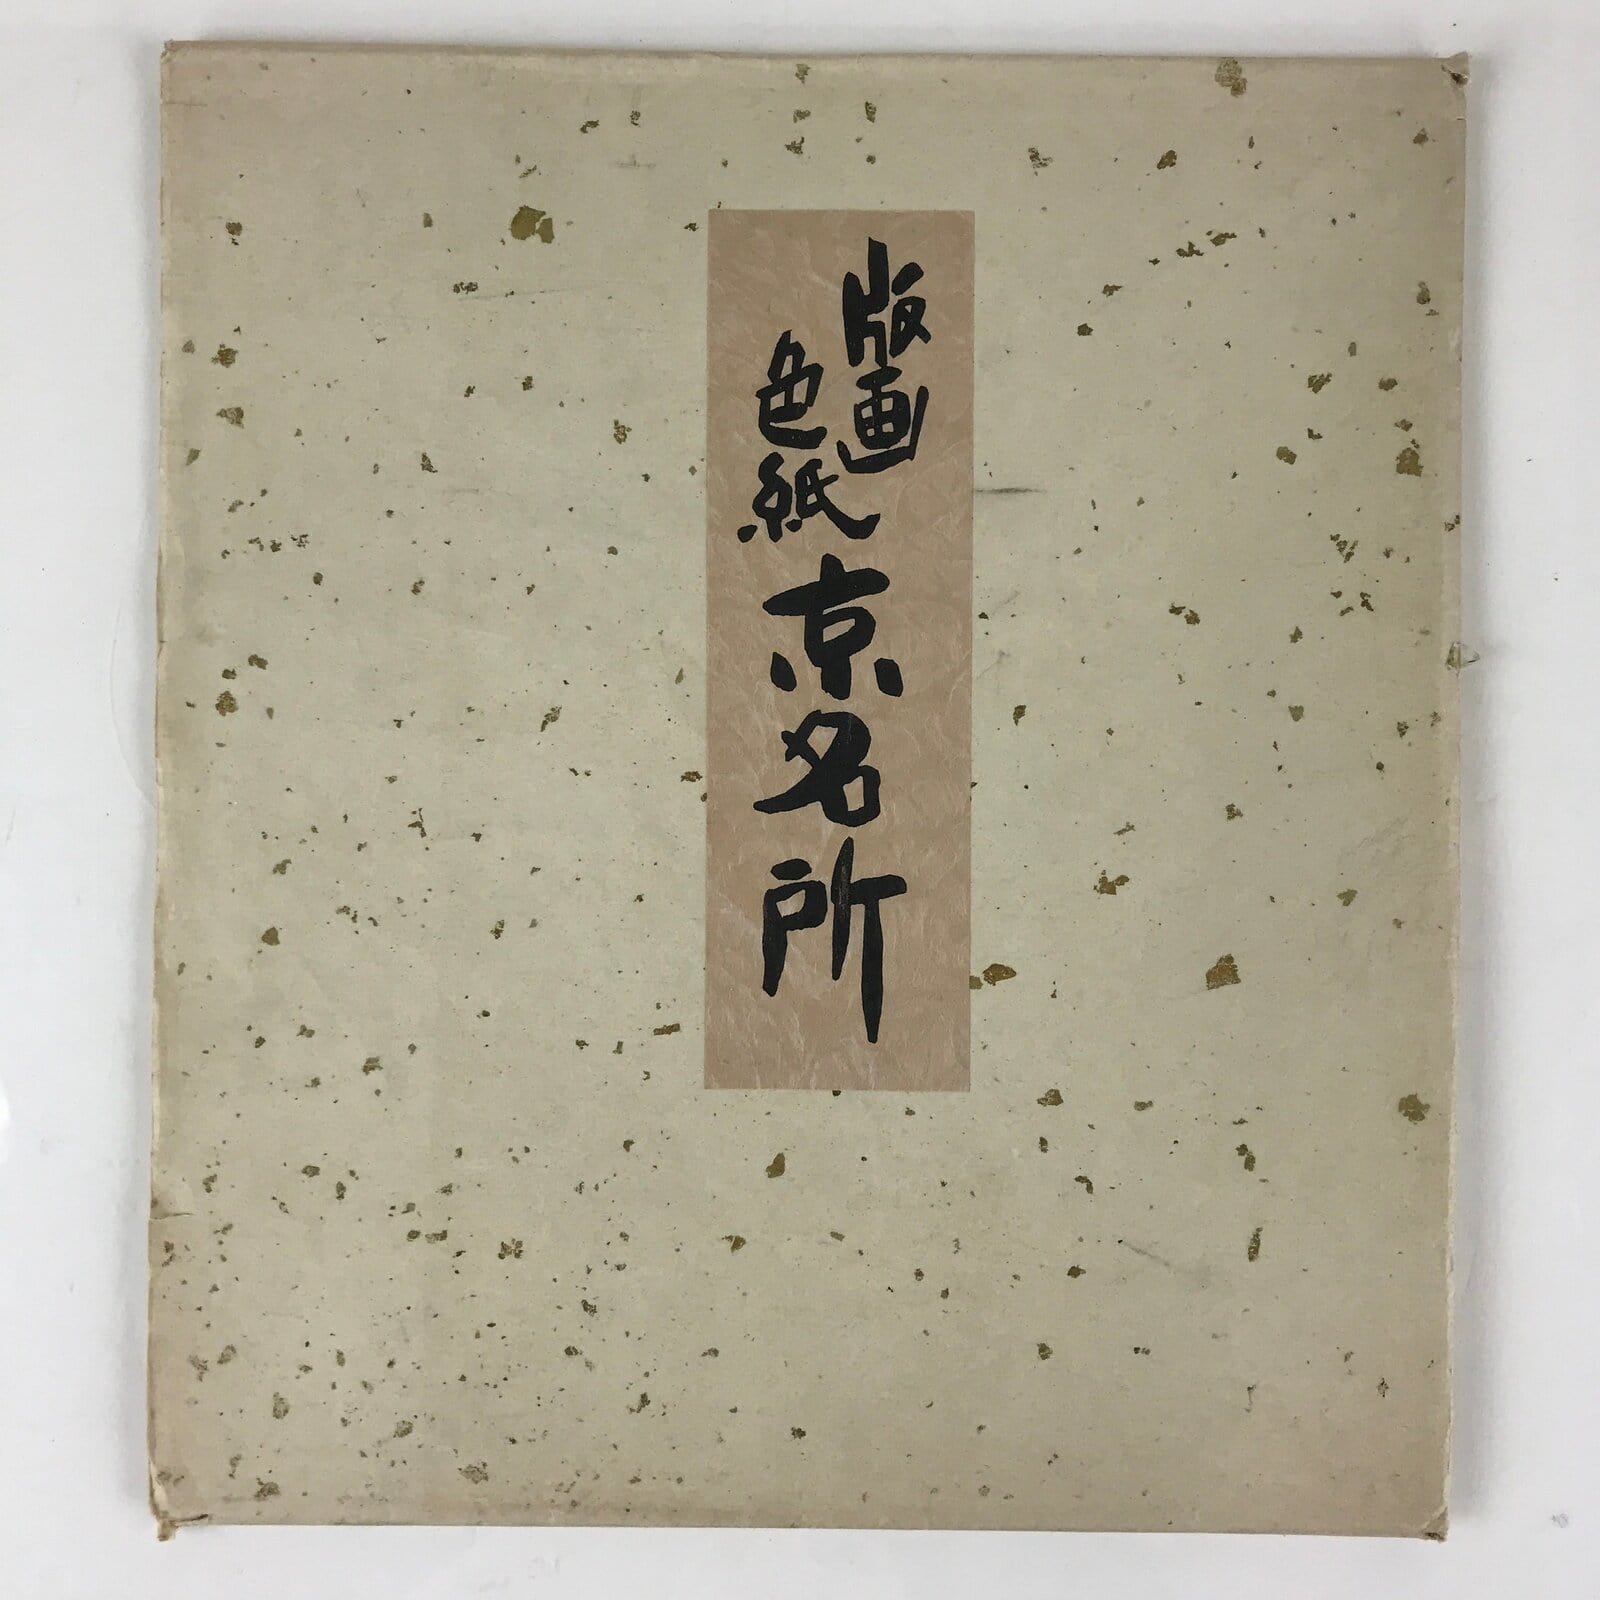 版画
色紙
京名所